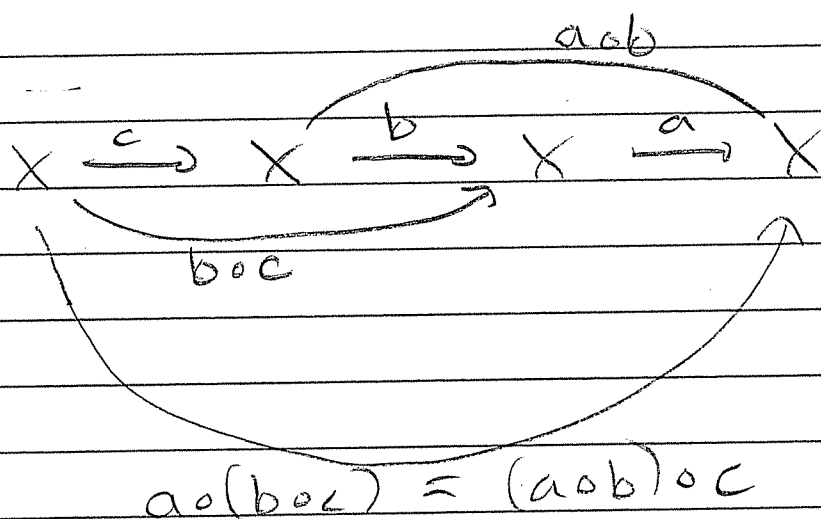 a∘b
X c→ X b→ X a→ X
b∘c
a∘(b∘c) = (a∘b)∘c